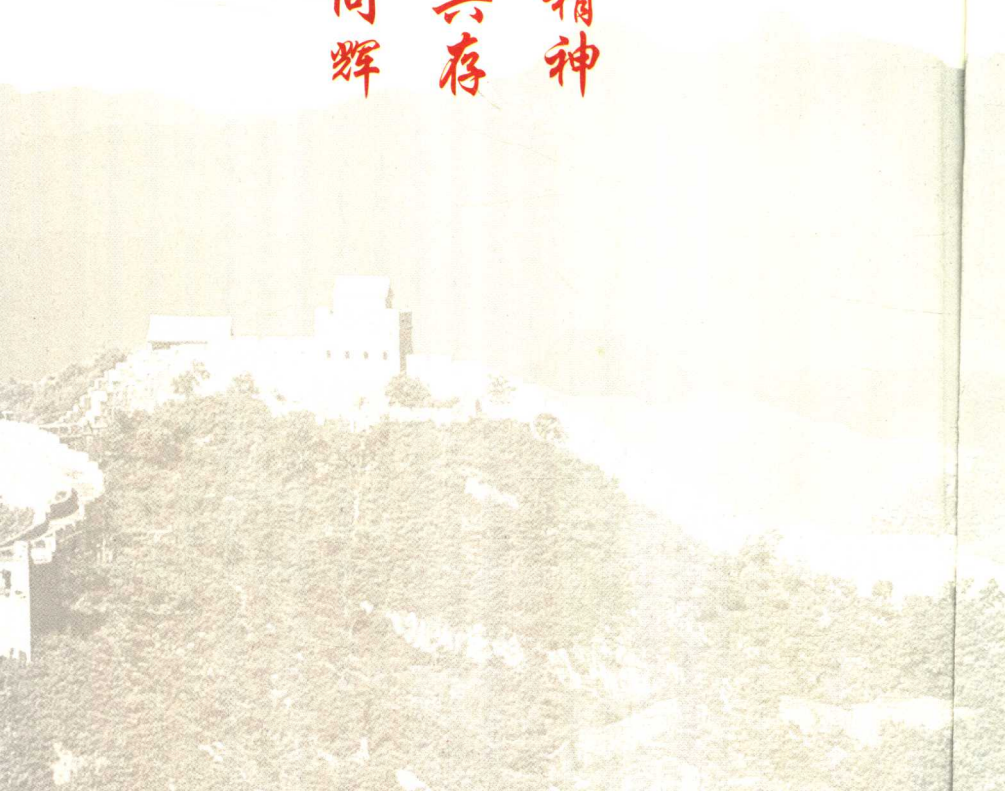 精神
共存
同辉